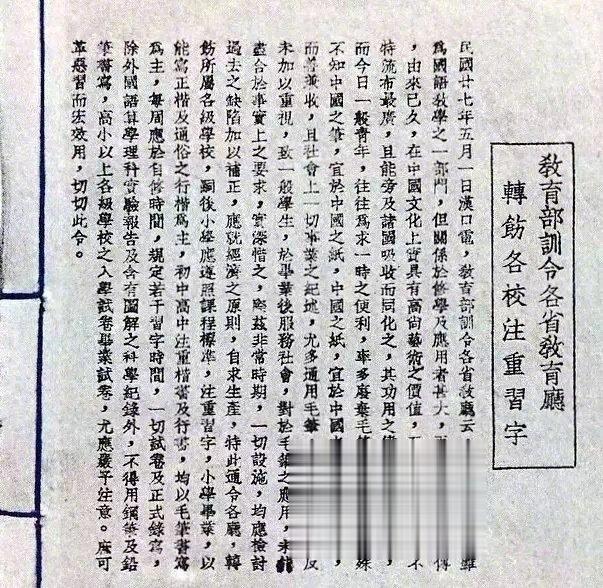 教育部訓令各省教育廳
轉飭各校注重習字
民國廿七年五月一日漢口電，教育部訓令各省教廳云
為國語教學之一部門，但關係於修學及應用者甚大，傳
，由來已久，在中國文化上實具有高尚藝術之價值，不
特流布最廣，且能旁及諸國吸收而同化之，其功用之
而今日一般青年，往往為求一時之便利，率多廢棄毛殊
不知中國之筆，宜於中國之紙，中國之紙，宜於中國，
而善兼收，且社會上一切事業之紀述，尤多通用毛筆反
未加以重視，致一般學生，於畢業後服務社會，對於毛筆之應用，未能
盡合於事實上之要求，實深惜之，際茲非常時期，一切設施，均應檢討
過去之缺陷加以補正，應就經濟之原則，自求生產，特此通令各廳，轉
飭所屬各級學校，嗣後小學應遵照課程標準，注重習字，小學畢業，以
能寫正楷及通俗之行楷為主，初中高中注重楷書及行書，均以毛筆書寫
為主，每周應於自修時間，規定若干習字時間，一切試卷及正式錄寫，
除外國語算學理科實驗報告及含有圖解之科學紀錄外，不得用鋼筆及鉛
筆書寫，高小以上各級學校之入學試卷畢業試卷，尤應嚴予注意。庶可
革惡習而宏效用，切切此令。